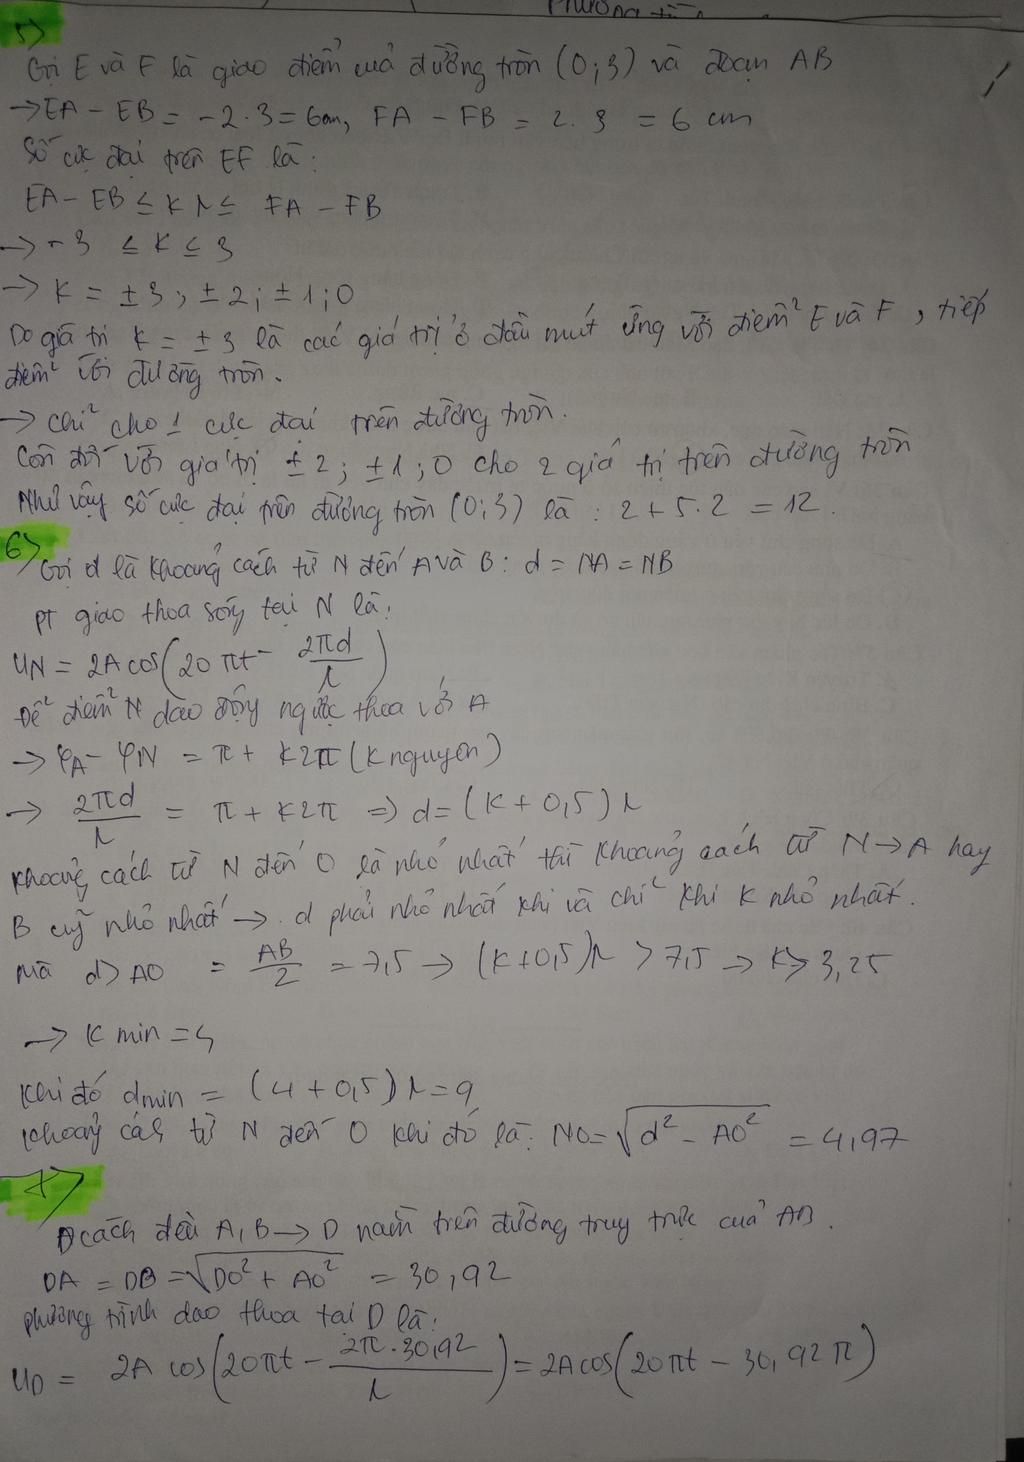 5)
Gọi E và F là giao điểm của đường tròn (O;3) và đoạn AB
→ EA - EB = -2.3 = 6cm, FA - FB = 2.3 = 6 cm
Số cực đại trên EF là:
EA - EB ≤ kλ ≤ FA - FB
→ -3 ≤ K ≤ 3
→ K = ±3; ±2; ±1; 0
Do giá trị k = ±3 là các giá trị ở đầu mút ứng với điểm E và F, tiếp
điểm với đường tròn.
→ chỉ cho 1 cực đại trên đường tròn.
Còn đối với giá trị ±2; ±1; 0 cho 2 giá trị trên đường tròn
Như vậy số cực đại trên đường tròn (O;3) là: 2 + 5.2 = 12.
6) Gọi d là khoảng cách từ N đến A và B: d = NA = NB
pt giao thoa sóng tại N là:
uN = 2A cos(20πt - 2πd/λ)
Để điểm N dao động ngược thoa với A
→ φA - φN = π + k2π (k nguyên)
→ 2πd/λ = π + k2π => d = (k + 0,5)λ
Khoảng cách từ N đến O là nhỏ nhất thì khoảng cách từ N → A hay
B cũg nhỏ nhất → d phải nhỏ nhất khi và chỉ khi k nhỏ nhất.
Mà d > AO = AB/2 = 7,5 → (k+0,5)λ > 7,5 → k > 3,25
→ k min = 4
Khi đó dmin = (4 + 0,5)λ = 9
Khoảng cách từ N đến O khi đó là: NO = √(d² - AO²) = 4,97
7)
D cách đều A, B → D nằm trên đường truy trực của AB.
DA = DB = √(DO² + AO²) = 30,92
phương trình dao thoa tại D là:
uD = 2A cos(20πt - 2π.30,92/λ) = 2A cos(20πt - 30,92π)